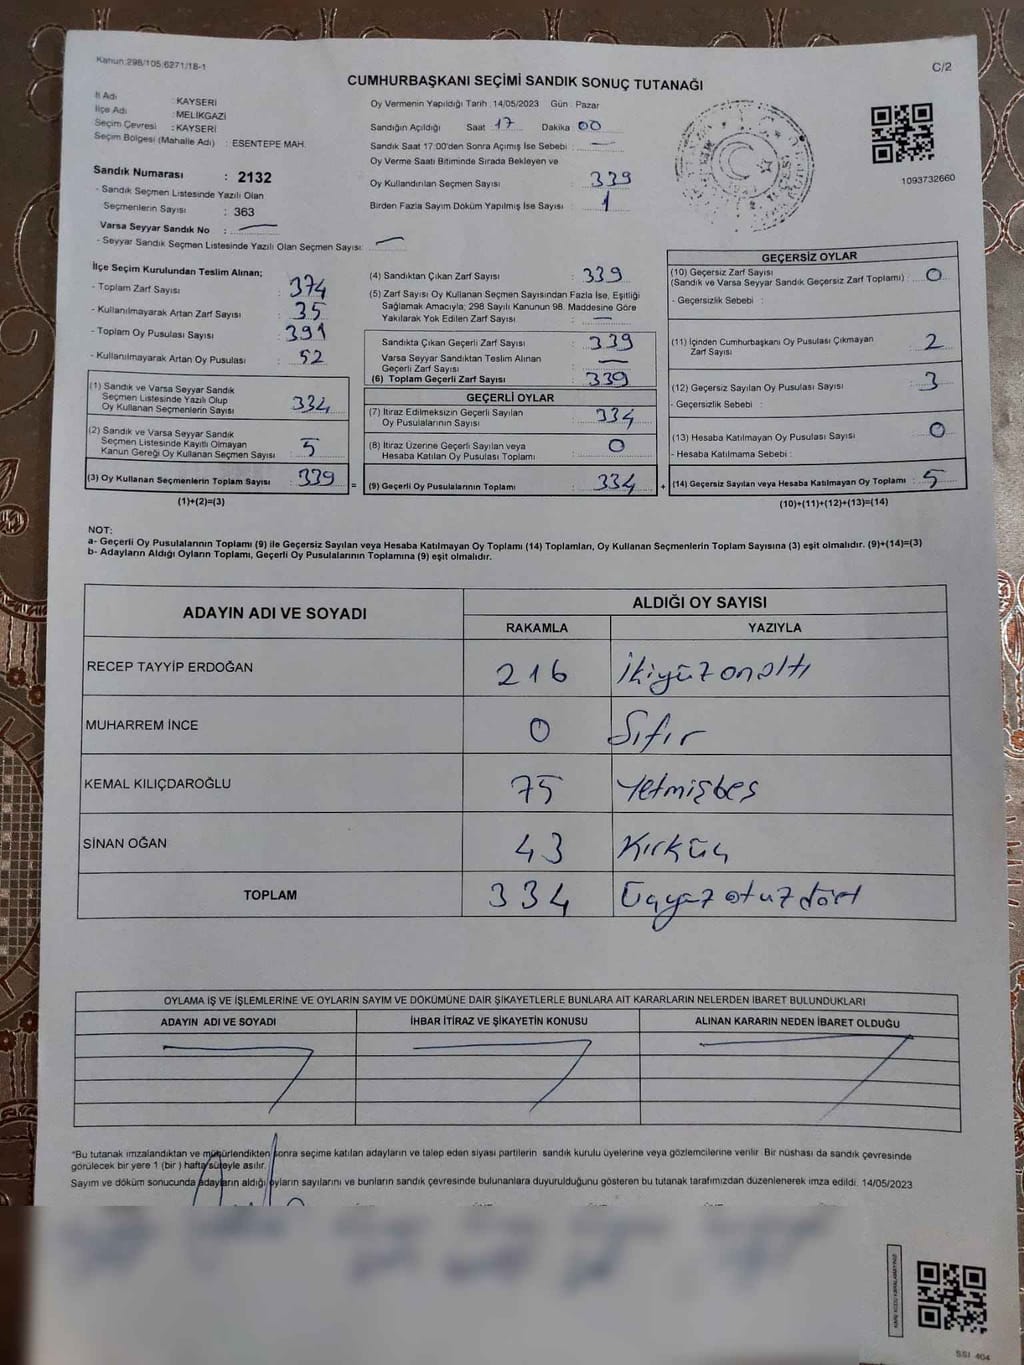 Kanun:298/105.6271/18-1
C/2
CUMHURBAŞKANI SEÇİMİ SANDIK SONUÇ TUTANAĞI
İl Adı : KAYSERİ
İlçe Adı : MELİKGAZİ
Seçim Çevresi : KAYSERİ
Seçim Bölgesi (Mahalle Adı) : ESENTEPE MAH.
Sandık Numarası : 2132
- Sandık Seçmen Listesinde Yazılı Olan
Seçmenlerin Sayısı : 363
Varsa Seyyar Sandık No :
- Seyyar Sandık Seçmen Listesinde Yazılı Olan Seçmen Sayısı:
Oy Vermenin Yapıldığı Tarih : 14/05/2023 Gün : Pazar
Sandığın Açıldığı Saat 17 Dakika 00
Sandık Saat 17:00'den Sonra Açımış İse Sebebi : —
Oy Verme Saati Bitiminde Sırada Bekleyen ve
Oy Kullandırılan Seçmen Sayısı : 339
Birden Fazla Sayım Döküm Yapılmış İse Sayısı : 1
1093732660
İlçe Seçim Kurulundan Teslim Alınan;
- Toplam Zarf Sayısı : 374
- Kullanılmayarak Artan Zarf Sayısı : 35
- Toplam Oy Pusulası Sayısı : 391
- Kullanılmayarak Artan Oy Pusulası : 52
(1) Sandık ve Varsa Seyyar Sandık
Seçmen Listesinde Yazılı Olup
Oy Kullanan Seçmenlerin Sayısı : 334
(2) Sandık ve Varsa Seyyar Sandık
Seçmen Listesinde Kayıtlı Olmayan
Kanun Gereği Oy Kullanan Seçmen Sayısı : 5
(3) Oy Kullanan Seçmenlerin Toplam Sayısı : 339
(1)+(2)=(3)
(4) Sandıktan Çıkan Zarf Sayısı : 339
(5) Zarf Sayısı Oy Kullanan Seçmen Sayısından Fazla İse, Eşitliği
Sağlamak Amacıyla; 298 Sayılı Kanunun 98. Maddesine Göre
Yakılarak Yok Edilen Zarf Sayısı : —
Sandıkta Çıkan Geçerli Zarf Sayısı : 339
Varsa Seyyar Sandıktan Teslim Alınan
Geçerli Zarf Sayısı : —
(6) Toplam Geçerli Zarf Sayısı : 339
GEÇERLİ OYLAR
(7) İtiraz Edilmeksizin Geçerli Sayılan
Oy Pusulalarının Sayısı : 334
(8) İtiraz Üzerine Geçerli Sayılan veya
Hesaba Katılan Oy Pusulası Toplamı : 0
= (9) Geçerli Oy Pusulalarının Toplamı : 334
GEÇERSİZ OYLAR
(10) Geçersiz Zarf Sayısı
(Sandık ve Varsa Seyyar Sandık Geçersiz Zarf Toplamı) : 0
- Geçersizlik Sebebi :
(11) İçinden Cumhurbaşkanı Oy Pusulası Çıkmayan
Zarf Sayısı : 2
(12) Geçersiz Sayılan Oy Pusulası Sayısı : 3
- Geçersizlik Sebebi :
(13) Hesaba Katılmayan Oy Pusulası Sayısı : 0
- Hesaba Katılmama Sebebi :
+ (14) Geçersiz Sayılan veya Hesaba Katılmayan Oy Toplamı : 5
(10)+(11)+(12)+(13)=(14)
NOT:
a- Geçerli Oy Pusulalarının Toplamı (9) ile Geçersiz Sayılan veya Hesaba Katılmayan Oy Toplamı (14) Toplamları, Oy Kullanan Seçmenlerin Toplam Sayısına (3) eşit olmalıdır. (9)+(14)=(3)
b- Adayların Aldığı Oyların Toplamı, Geçerli Oy Pusulalarının Toplamına (9) eşit olmalıdır.
ADAYIN ADI VE SOYADI ALDIĞI OY SAYISI
RAKAMLA YAZIYLA
RECEP TAYYİP ERDOĞAN 216 İkiyüzonaltı
MUHARREM İNCE 0 Sıfır
KEMAL KILIÇDAROĞLU 75 Yetmişbeş
SİNAN OĞAN 43 Kırküç
TOPLAM 334 Üçyüz otuz dört
OYLAMA İŞ VE İŞLEMLERİNE VE OYLARIN SAYIM VE DÖKÜMÜNE DAİR ŞİKAYETLERLE BUNLARA AİT KARARLARIN NELERDEN İBARET BULUNDUKLARI
ADAYIN ADI VE SOYADI İHBAR İTİRAZ VE ŞİKAYETİN KONUSU ALINAN KARARIN NEDEN İBARET OLDUĞU
*Bu tutanak imzalandıktan ve mühürlendikten sonra seçime katılan adayların ve talep eden siyasi partilerin sandık kurulu üyelerine veya gözlemcilerine verilir. Bir nüshası da sandık çevresinde
görülecek bir yere 1 (bir) hafta süreyle asılır.
Sayım ve döküm sonucunda adayların aldığı oyların sayılarını ve bunların sandık çevresinde bulunanlara duyurulduğunu gösteren bu tutanak tarafımızdan düzenlenerek imza edildi. 14/05/2023
SSI 404